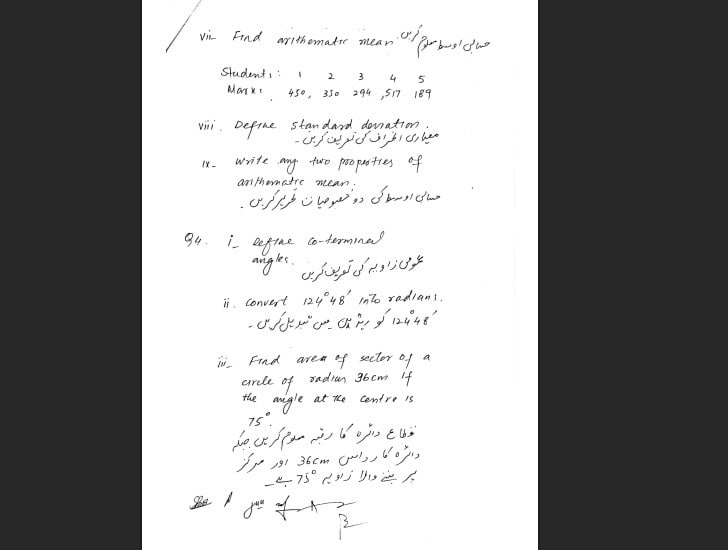 vii- Find arithematic mean. حسابی اوسط معلوم کریں
Students: 1 2 3 4 5
Marks: 450, 330 294 ,517 189
viii. Define standard deviation.
معیاری انحراف کی تعریف کریں۔
ix- Write any two properties of
arithematic mean.
حسابی اوسط کی دو خصوصیات تحریر کریں۔
Q4. i_ Define co-terminal
angles. عمومی زاویہ کی تعریف کریں
ii. Convert 124°48′ into radians.
124°48′ کو ریڈین میں تبدیل کریں۔
iii_ Find area of sector of a
circle of radius 36cm if
the angle at the centre is
75°.
قطاع دائرہ کا رقبہ معلوم کریں جبکہ
دائرہ کا رداس 36cm اور مرکز
پر بننے والا زاویہ 75° ہے۔